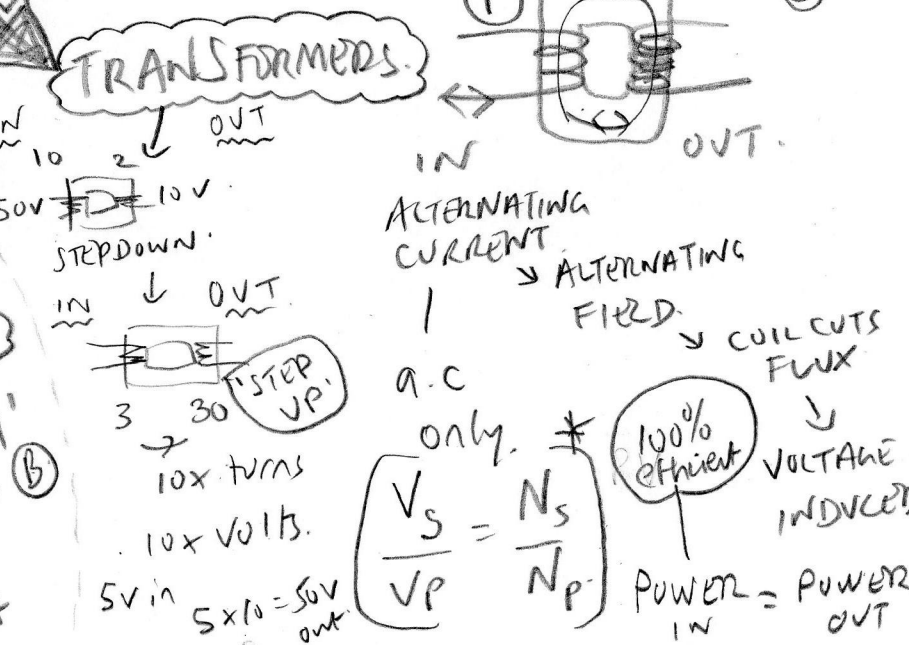 TRANSFORMERS.
1
IN
OUT
10 2
50V 10V.
STEPDOWN.
IN
OUT
3 30
STEP
UP.
10x turns
10x Volts.
5v in
5x10 = 50V
out
IN
OUT.
ALTERNATING
CURRENT
a.c
only.
ALTERNATING
FIELD.
COIL CUTS
FLUX
VOLTAGE
INDUCED
*
Vs = Ns
VP NP.
100%
efficient
POWER = POWER
IN OUT
B